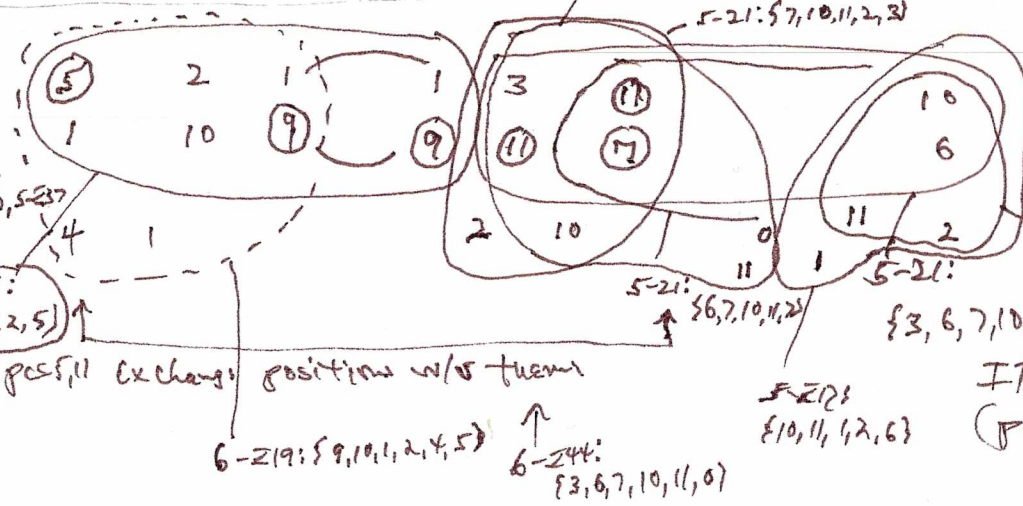 5-21: {7,10,11,2,3}
5 2 1 1 3 11 10
1 10 9 9 11 7 6
5-Z37
4 1 2 10 0 11 2
11 1
2,5}
5-21:
{6,7,10,11,2}
5-21:
{3,6,7,10
pcs 5,11 exchange position w/o theme
6-Z19: {9,10,1,2,4,5}
6-Z44:
{3,6,7,10,11,0}
{10,11,1,2,6}